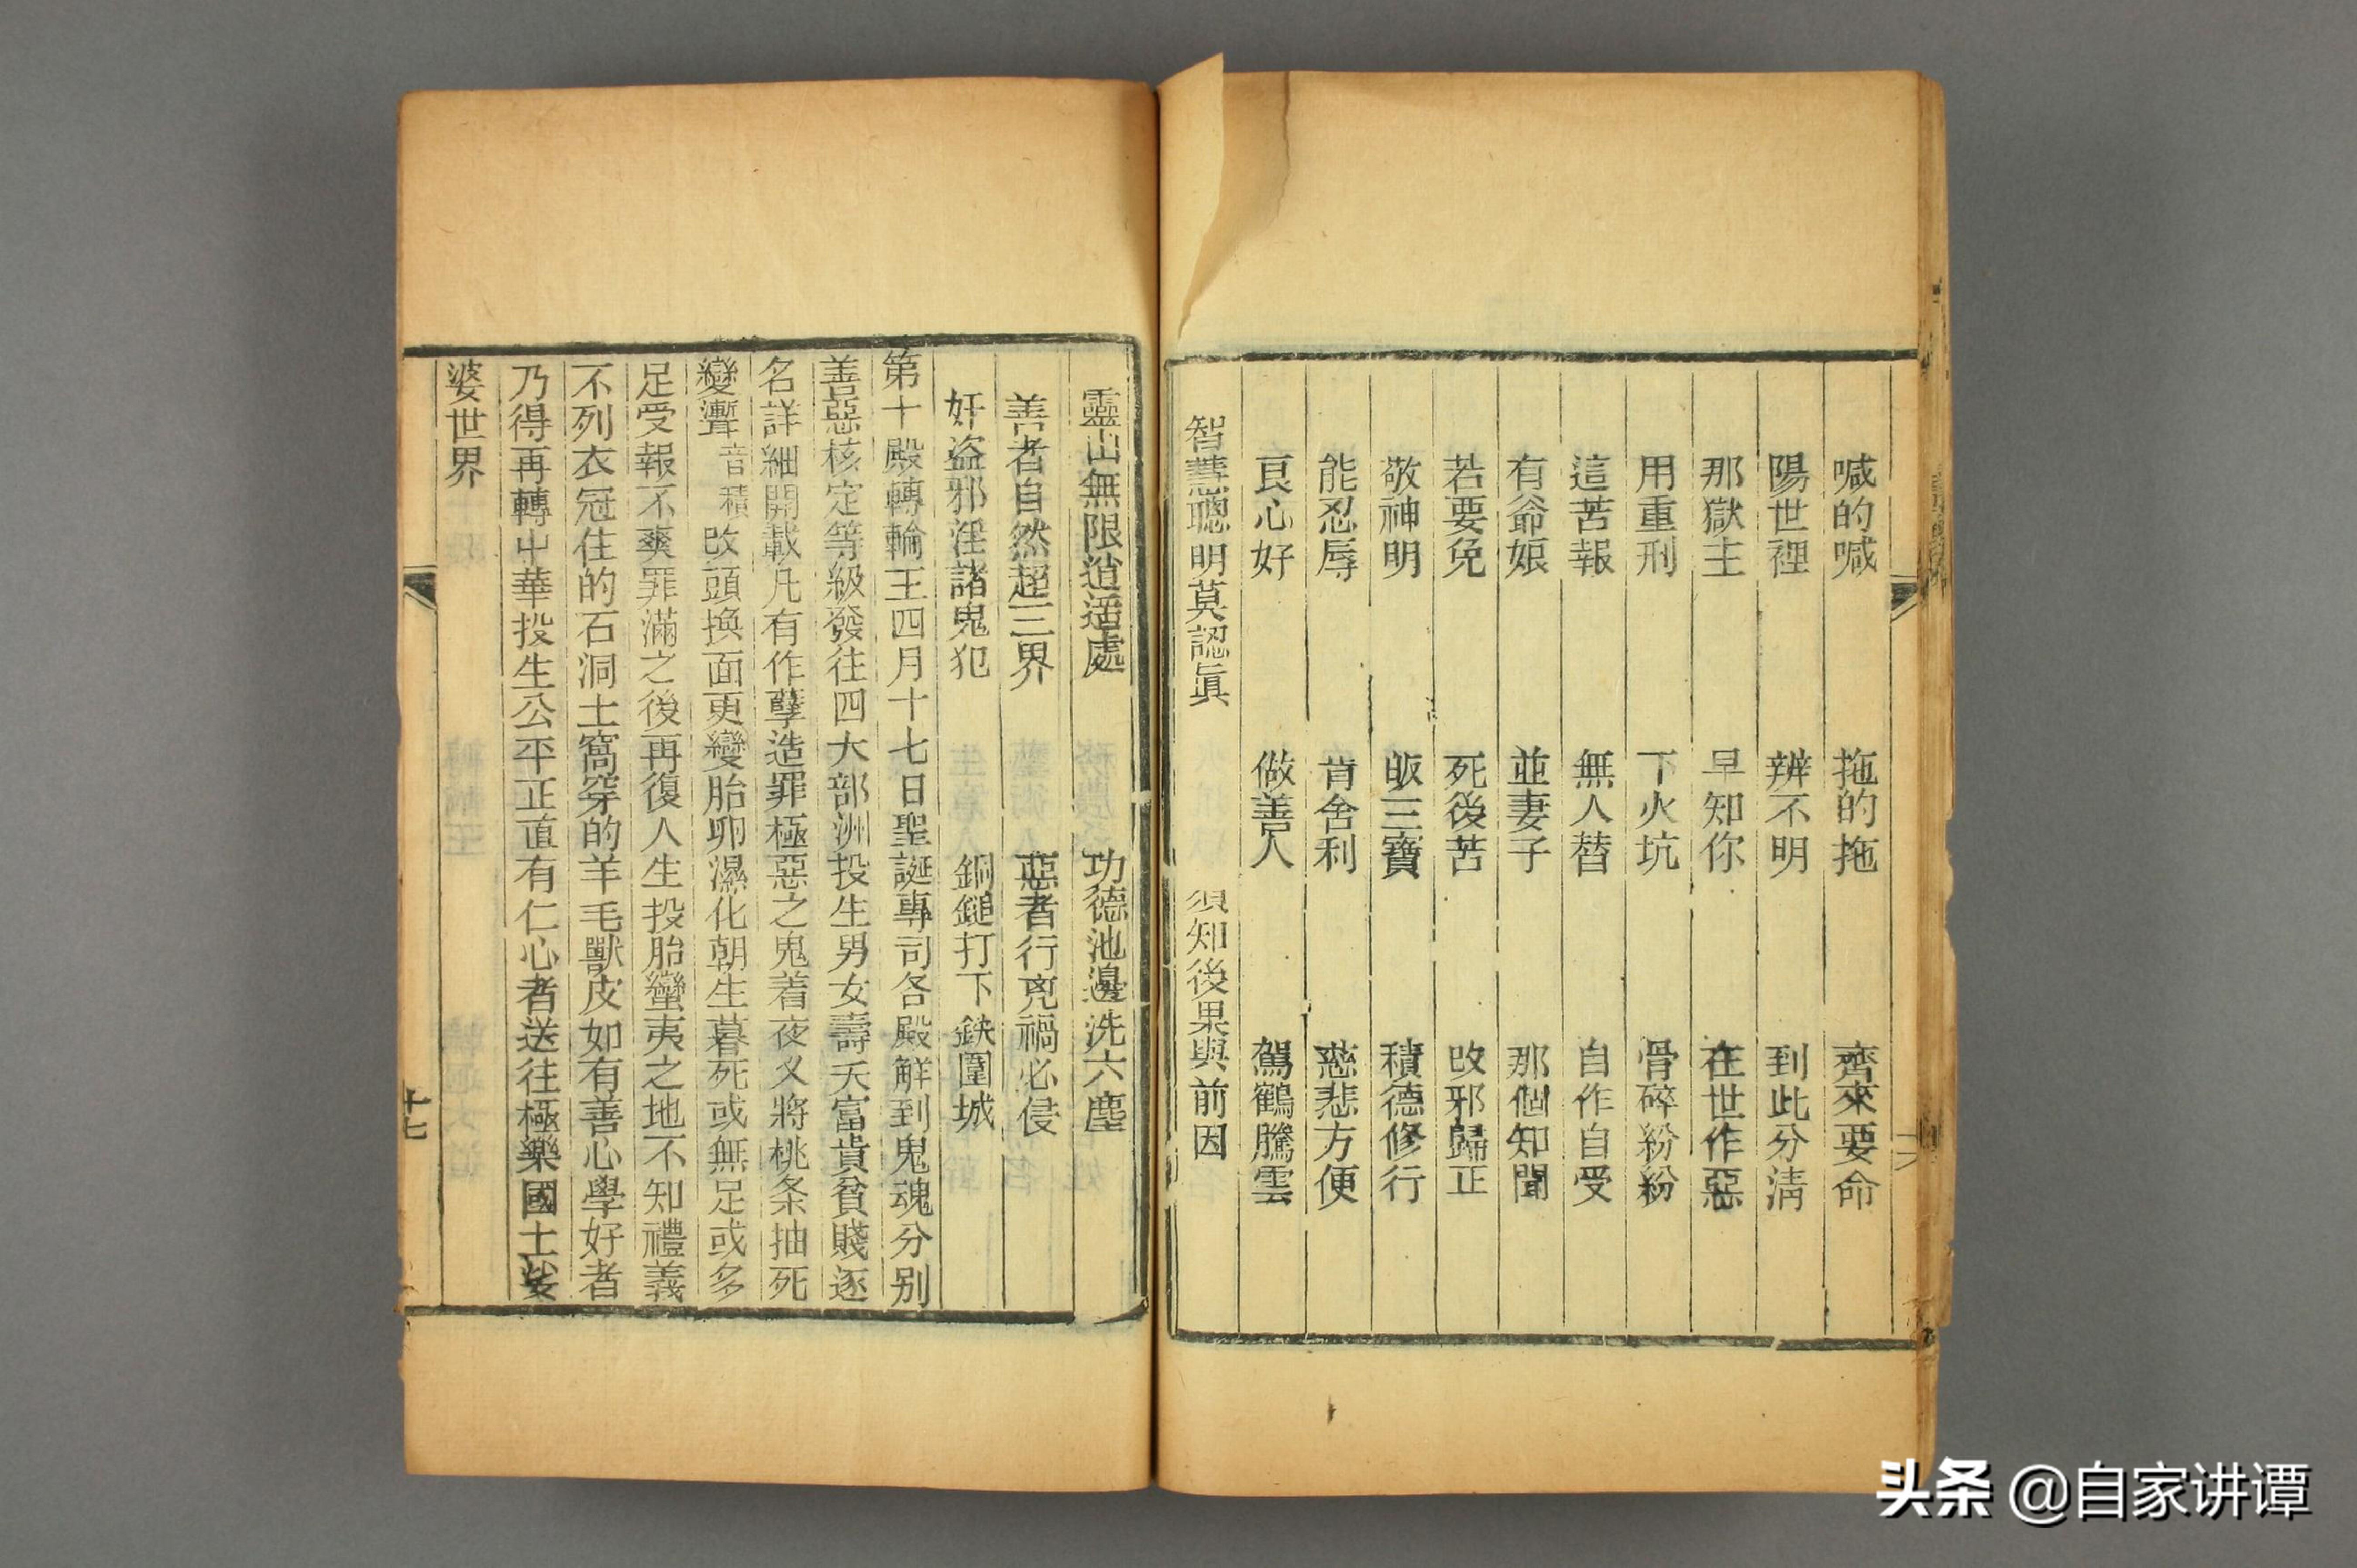 喊的喊 拖的拖 齊來要命
陽世裡 辨不明 到此分淸
那獄主 早知你 在世作惡
用重刑 下火坑 骨碎紛紛
這苦報 無人替 自作自受
有爺娘 並妻子 那個知聞
若要免 死後苦 改邪歸正
敬神明 皈三寶 積德修行
能忍辱 肯舍利 慈悲方便
良心好 做善人 駕鶴騰雲
智慧聰明莫認眞 須知後果與前因
靈山無限逍遥處 功德池邊洗六塵
善者自然超三界 惡者行兇禍必侵
奸盗邪淫諸鬼犯 銅鎚打下鉄圍城
第十殿轉輪王四月十七日聖誕專司各殿解到鬼魂分别
善惡核定等級發往四大部洲投生男女壽夭富貴貧賤逐
名詳細開載凡有作孽造罪極惡之鬼着夜叉將桃条抽死
變魙音積改頭換面更變胎卵濕化朝生暮死或無足或多
足受報不爽罪滿之後再復人生投胎蠻夷之地不知禮義
不列衣冠住的石洞土窩穿的羊毛獸皮如有善心學好者
乃得再轉中華投生公平正直有仁心者送往極樂國土娑
婆世界
十七
头条 @自家讲谭